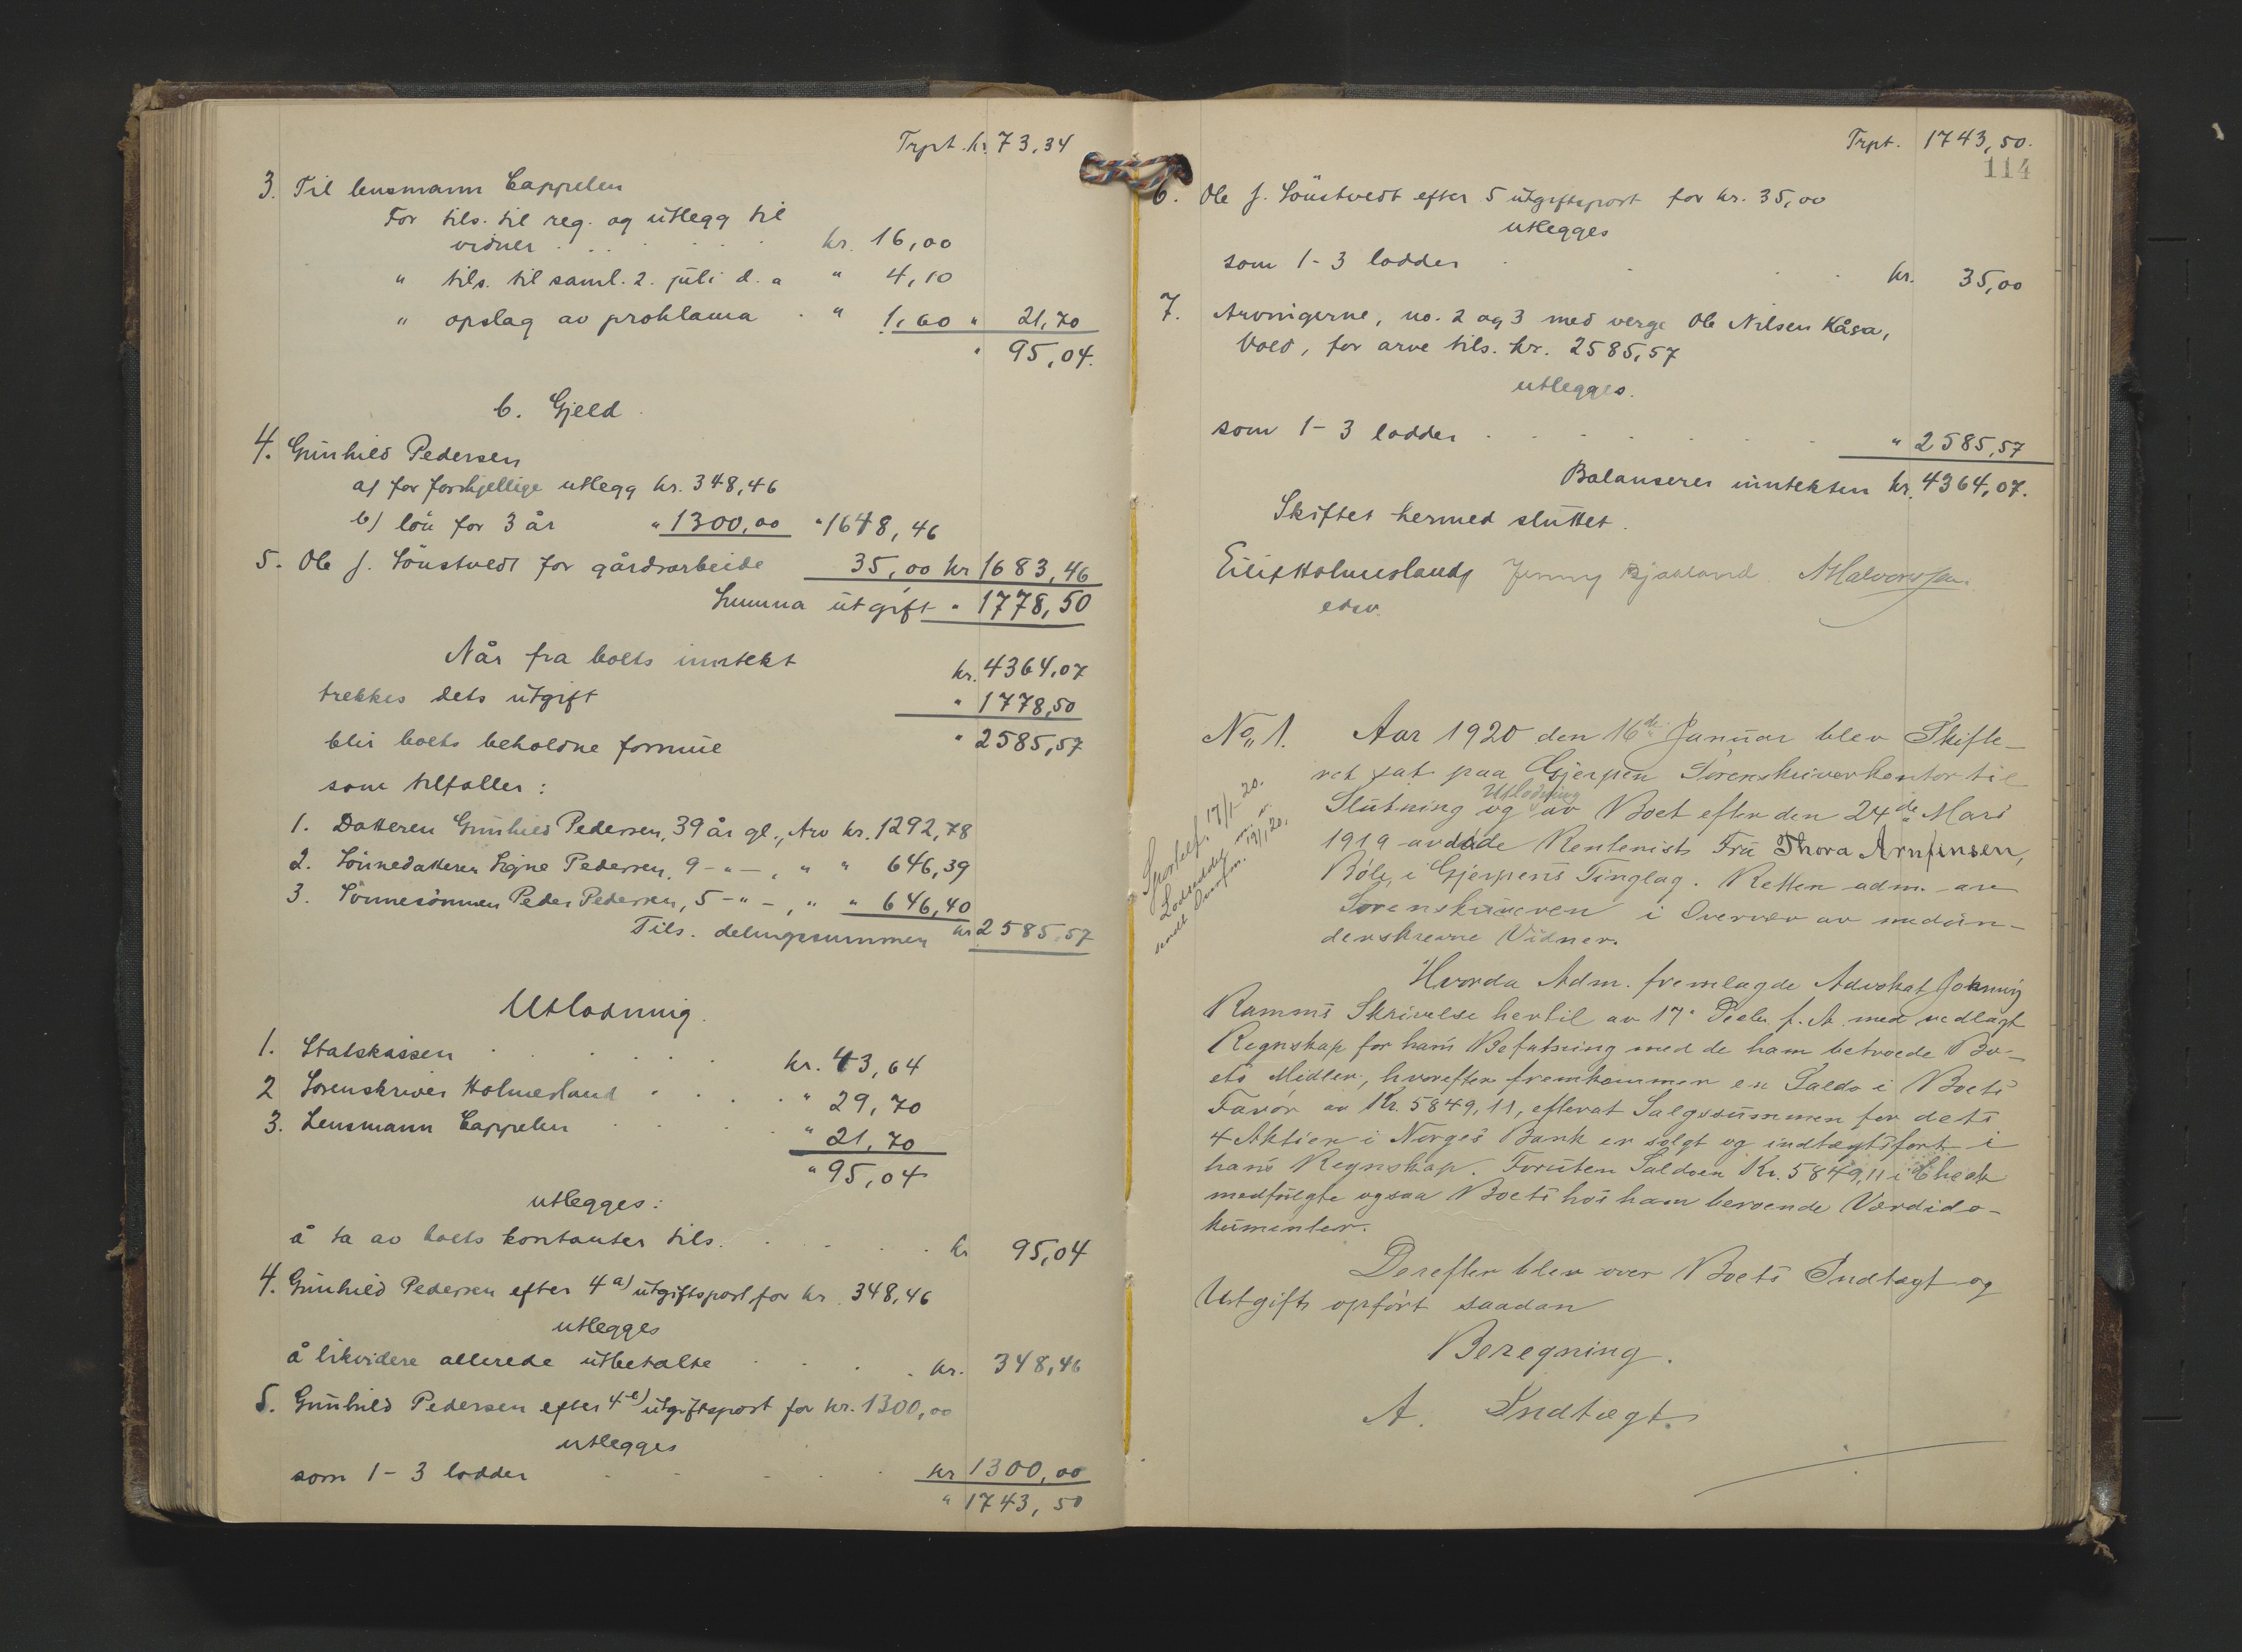 Trpt. kr. 73,34
3. Til lensmann Cappelen
For tils. til reg. og utlegg til
vidner . . . . . . kr. 16,00
" tils. til saml. 2. juli d. a " 4,10
" opslag av proklama . " 1,60 " 21,70
" 95,04.
b. Gjeld
4. Gunhild Pedersen
a) for forskjellige utlegg kr. 348,46
b) lön for 3 år " 1300,00 " 1648,46
5. Ole J. Sönstvedt for gårdsarbeide 35,00 kr 1683,46
Summa utgift " 1778,50
Når fra boets inntekt kr. 4364,07
trekkes dets utgift " 1778,50
blir boets beholdne formue " 2585,57
som tilfaller:
1. Datteren Gunhild Pedersen, 39 år gl., Arv kr. 1292,78
2. Sönnedatteren Signe Pedersen, 9 - " - , " " 646,39
3. Sönnesönnen Peder Pedersen, 5 - " - , " " 646,40
Tils. delingssummen kr 2585,57
Utlodning.
1. Statskassen . . . . . . kr. 43,64
2 Sorenskriver Holmesland . . . . " 29,70
3. Lensmann Cappelen . . . . " 21,70
" 95,04
utlegges:
å ta av boets kontanter tils. . . . . . kr 95,04
4. Gunhild Pedersen efter 4 a) utgiftspost for kr. 348,46
utlegges
å likvidere allerede utbetalte . . . . kr. 348,46
5. Gunhild Pedersen efter 4 b) utgiftspost for kr. 1300,00
utlegges
som 1-3 lodder . . . . . kr 1300,00
" 1743,50
Trpt. 1743,50.
114
6. Ole J. Sönstvedt efter 5 utgiftspost for kr. 35,00
utlegges
som 1-3 lodder . . . . kr. 35,00
7. Arvingerne, no. 2 og 3 med verge Ole Nilsen Kåsa,
Vold, for arve tils. kr. 2585,57
utlegges.
som 1-3 lodder . . . . . . " 2585,57
Balanserer inntekten kr. 4364,07.
Skiftet hermed sluttet.
Eilif Holmesland Jenny Bjaaland A Halvorsen.
edsv.
No 1. Aar 1920 den 16de Januar blev Skifte-
ret sat paa Gjerpen Sorenskriverkontor til
Slutning og Utlodning av Boet efter den 24de Mars
1919 avdöde Rentenist Fru Thora Arnfinsen,
Böle, i Gjerpens Tinglag. Retten adm. av
Sorenskriveren i Overvær av medun-
derskrevne Vidner.
Sportelf. 17/1-20.
Hvorda Adm. fremlagde Advokat Johnny
Ramms Skrivelse hertil av 17. Decbr. f. A. med vedlagt
Regnskap for hans Befatning med de ham betroede Bo-
ets Midler, hvorefter fremkommer en Saldo i Boets
Favör av Kr. 5849,11, efterat Salgssummen for dets
4 Aktier i Norges Bank er solgt og indtægtsfört i
hans Regnskap. Foruten Saldoen Kr. 5849,11 i Check
medfulgte ogsaa Boets hos ham beroende Værdido-
kumenter.
Derefter blev over Boets Indtægt og
Utgift opfört saadan
Beregning.
A. Indtægt.